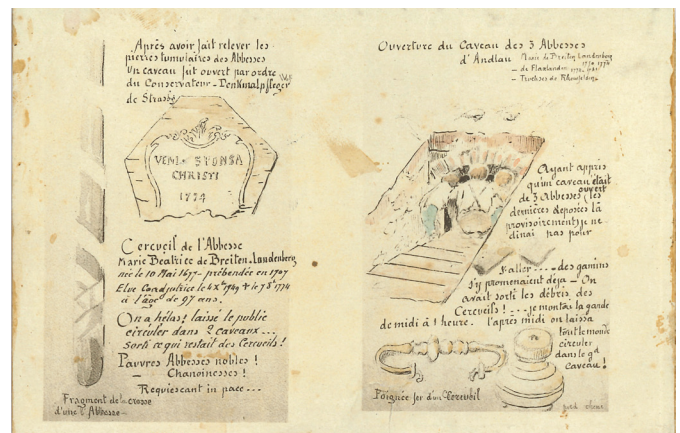 Après avoir fait relever les
pierres tumulaires des Abbesses
Un caveau fut ouvert par ordre
du Conservateur - Denkmalpfleger
de Strasbg
VENI SPONSA
CHRISTI
1774
Cercueil de l'Abbesse
Marie Béatrice de Breiten-Landenberg
née le 10 Mai 1677 - prébendée en 1707
Elue Coadjutrice le 4 Xe 1749 † le 7 8e 1774
à l'âge de 97 ans.
On a hélas! laissé le public
circuler dans 2 caveaux...
Sorti ce qui restait des Cercueils!
Pauvres Abbesses nobles!
— Chanoinesses!
Requiescant in pace...
Fragment de la crosse
d'une Abbesse -
Ouverture du Caveau des 3 Abbesses
d'Andlau
Marie de Breiten Landenberg
- de Flaxlanden
- Truchses de Rheinfelden
Ayant appris
qu'un caveau était
ouvert
de 3 Abbesses, les
dernières déposées là
provisoirement, je ne
dinai pas pour
y aller .... des gamins
s'y promenaient déjà - On
avait sorti les débris des
Cercueils! ... je montai la garde
de midi à 1 heure. l'après midi on laissa
tout le monde
circuler
dans le gd
caveau!
Poignée fer d'un Cercueil